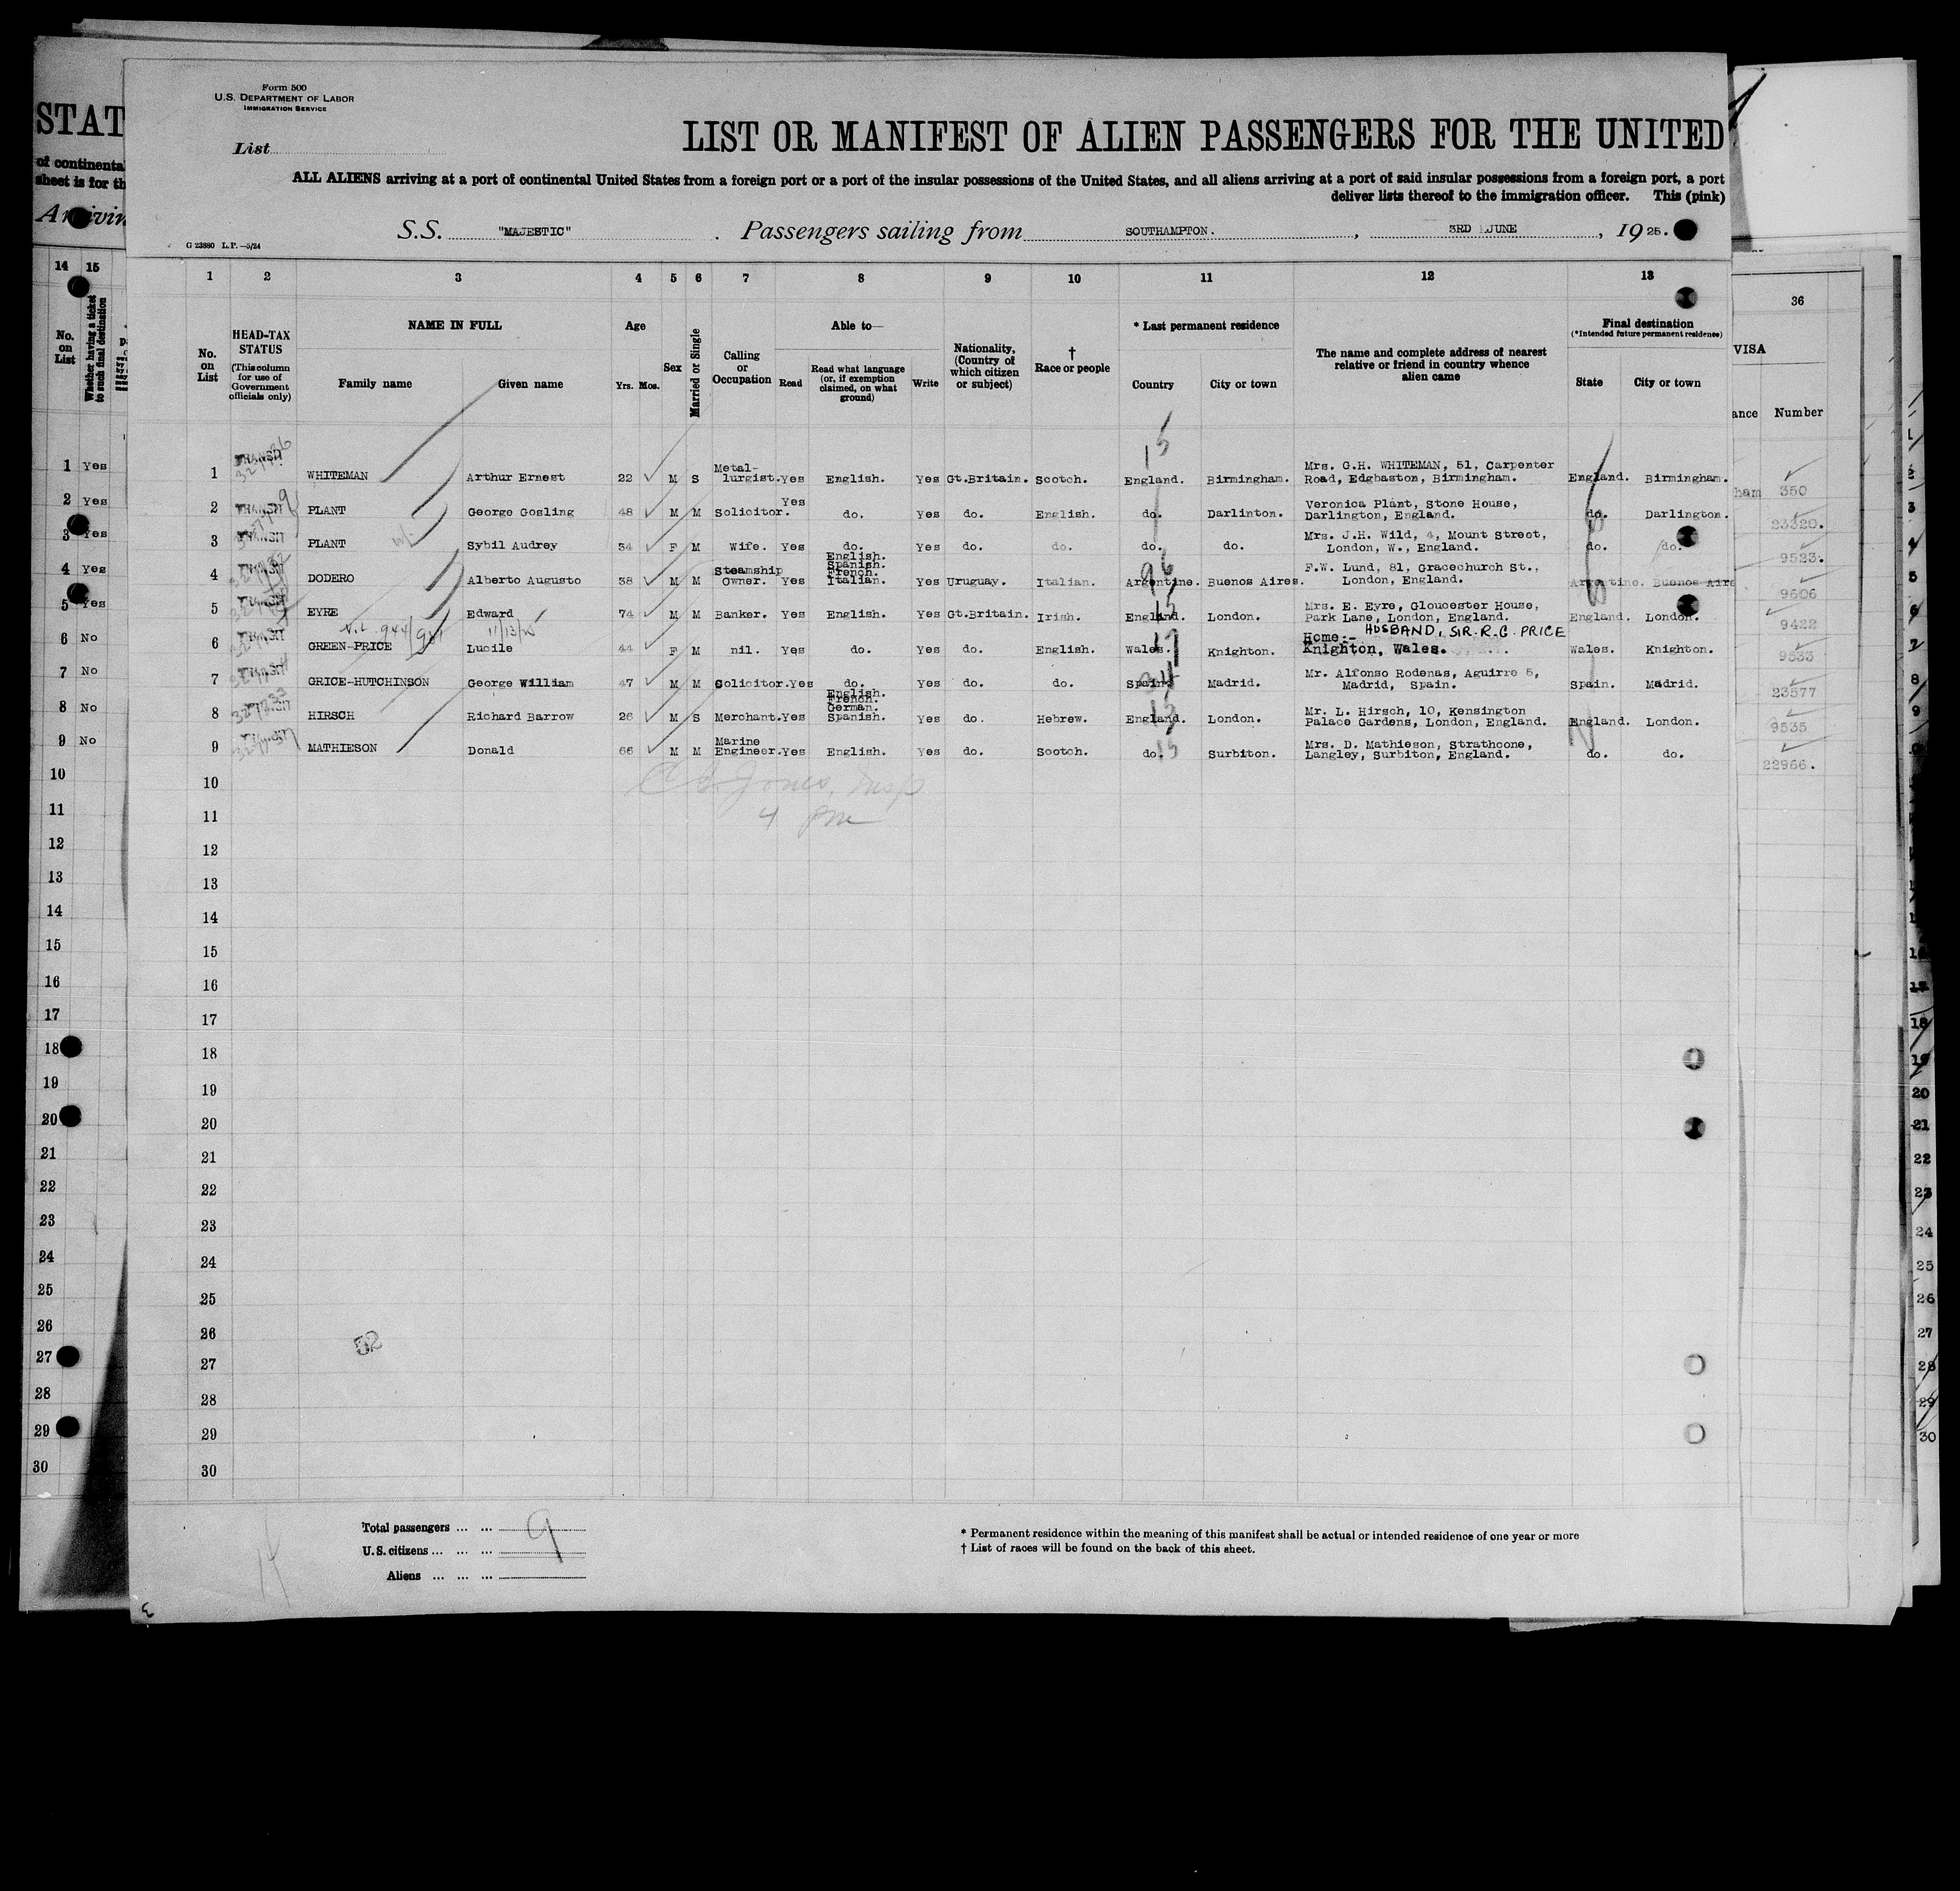 Form 500
U.S. DEPARTMENT OF LABOR
IMMIGRATION SERVICE
List
LIST OR MANIFEST OF ALIEN PASSENGERS FOR THE UNITED
ALL ALIENS arriving at a port of continental United States from a foreign port or a port of the insular possessions of the United States, and all aliens arriving at a port of said insular possessions from a foreign port, a port
deliver lists thereof to the immigration officer. This (pink)
G 23880 L.P.—5/24
S.S. "MAJESTIC" . Passengers sailing from SOUTHAMPTON. , 3RD JUNE , 19 25.
1 2 3 4 5 6 7 8 9 10 11 12 13
No. on List
HEAD-TAX STATUS (This column for use of Government officials only)
NAME IN FULL
Family name Given name
Age
Yrs. Mos.
Sex
Married or Single
Calling or Occupation
Able to—
Read
Read what language (or, if exemption claimed, on what ground)
Write
Nationality, (Country of which citizen or subject)
† Race or people
* Last permanent residence
Country City or town
The name and complete address of nearest relative or friend in country whence alien came
Final destination
(*Intended future permanent residence)
State City or town
1 TRANSIT WHITEMAN Arthur Ernest 22 M S Metal-lurgist. Yes English. Yes Gt.Britain. Scotch. England. Birmingham. Mrs. G.H. WHITEMAN, 51, Carpenter Road, Edgbaston, Birmingham. England. Birmingham.
2 TRANSIT PLANT George Gosling 48 M M Solicitor. Yes do. Yes do. English. do. Darlinton. Veronica Plant, Stone House, Darlington, England. do. Darlington.
3 TRANSIT PLANT Sybil Audrey 34 F M Wife. Yes do. Yes do. do. do. do. Mrs. J.H. Wild, 4, Mount Street, London, W., England. do. do.
4 TRANSIT DODERO Alberto Augusto 38 M M Steamship Owner. Yes English. Spanish. French. Italian. Yes Uruguay. Italian. Argentine. Buenos Aires. F.W. Lund, 81, Gracechurch St., London, England. Argentine. Buenos Aire
5 TRANSIT EYRE Edward 74 M M Banker. Yes English. Yes Gt.Britain. Irish. England. London. Mrs. E. Eyre, Gloucester House, Park Lane, London, England. England. London.
11/13/25
6 TRANSIT GREEN-PRICE Lucile 44 F M nil. Yes do. Yes do. English. Wales. Knighton. Home:- HUSBAND, SIR. R.G. PRICE Knighton, Wales. Wales. Knighton.
7 TRANSIT GRICE-HUTCHINSON George William 47 M M Solicitor. Yes do. Yes do. do. Spain. Madrid. Mr. Alfonso Rodenas, Aguirre 5, Madrid, Spain. Spain. Madrid.
8 HIRSCH Richard Barrow 26 M S Merchant. Yes English. French. German. Spanish. Yes do. Hebrew. England. London. Mr. L. Hirsch, 10, Kensington Palace Gardens, London, England. England. London.
9 MATHIESON Donald 66 M M Marine Engineer. Yes English. Yes do. Scotch. do. Surbiton. Mrs. D. Mathieson, Strathcone, Langley, Surbiton, England. do. do.
Jones, Insp
4 PM
10
11
12
13
14
15
16
17
18
19
20
21
22
23
24
25
26
27
28
29
30
52
Total passengers ... ... 9
U.S. citizens ... ... ...
Aliens ... ... ...
* Permanent residence within the meaning of this manifest shall be actual or intended residence of one year or more
† List of races will be found on the back of this sheet.
STAT
of continenta
sheet is for th
14 15
No. on List
Whether having a ticket to such final destination
1 Yes
2 Yes
3 Yes
4 Yes
5 Yes
6 No
7 No
8 No
9 No
10
11
12
13
14
15
16
17
18
19
20
21
22
23
24
25
26
27
28
29
30
36
VISA
ance Number
ham 350
23320.
9523.
9606
9422
9533
23577
9535
22966.